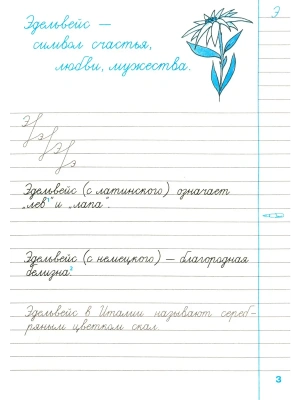 Эдельвейс —
символ счастья,
любви, мужества.
Э
Э э Э э
Эдельвейс (с латинского) означает
„лев¹" и „лапа".
Эдельвейс (с немецкого) — благородная
белизна.²
Эдельвейс в Италии называют сереб-
ряным цветком скал.
3